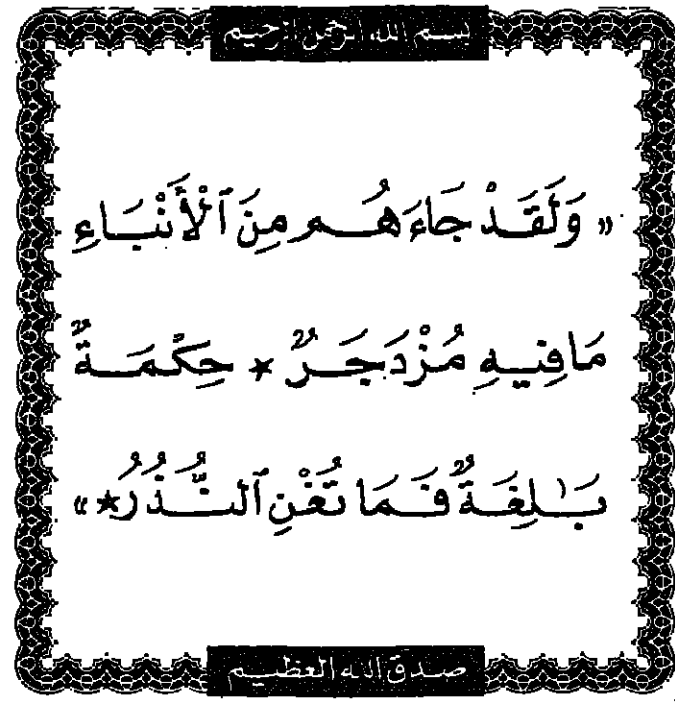 بسم الله الرحمن الرحيم
« وَلَقَدْ جَاءَهُم مِنَ ٱلْأَنْبَاءِ
مَا فِيهِ مُزْدَجَرٌ * حِكْمَةٌ
بَٰلِغَةٌ فَمَا تُغْنِ ٱلنُّذُرُ * »
صدق الله العظيم